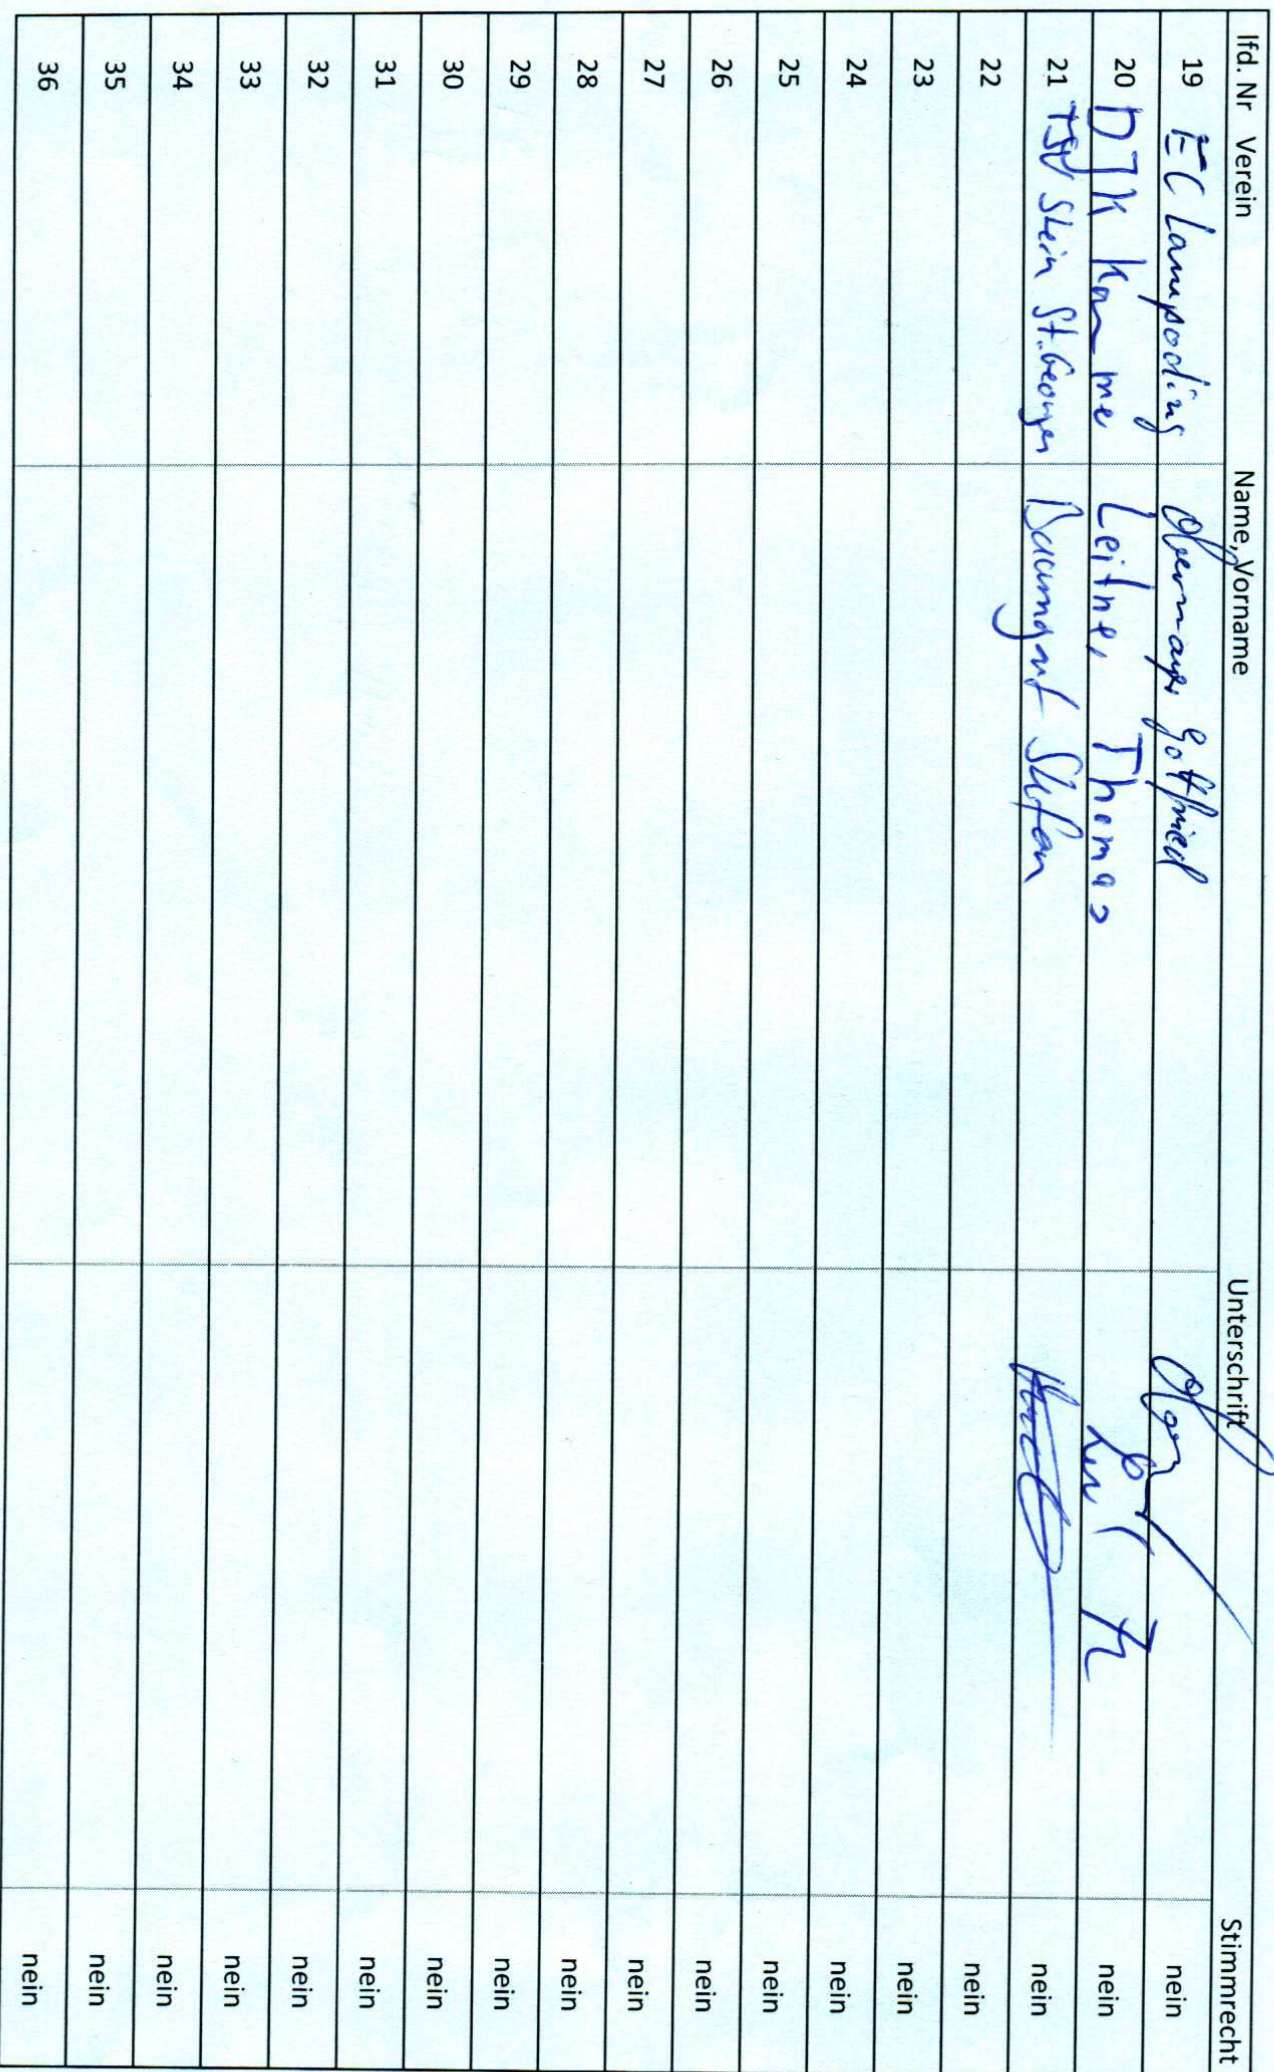 lfd. Nr Verein Name, Vorname Unterschrift Stimmrecht
19 EC Lampoding Obermayer Gottfried nein
20 DJK Kamme Leitner Thomas nein
21 TSV Stein St. Georgen Baumgart Stefan nein
22 nein
23 nein
24 nein
25 nein
26 nein
27 nein
28 nein
29 nein
30 nein
31 nein
32 nein
33 nein
34 nein
35 nein
36 nein